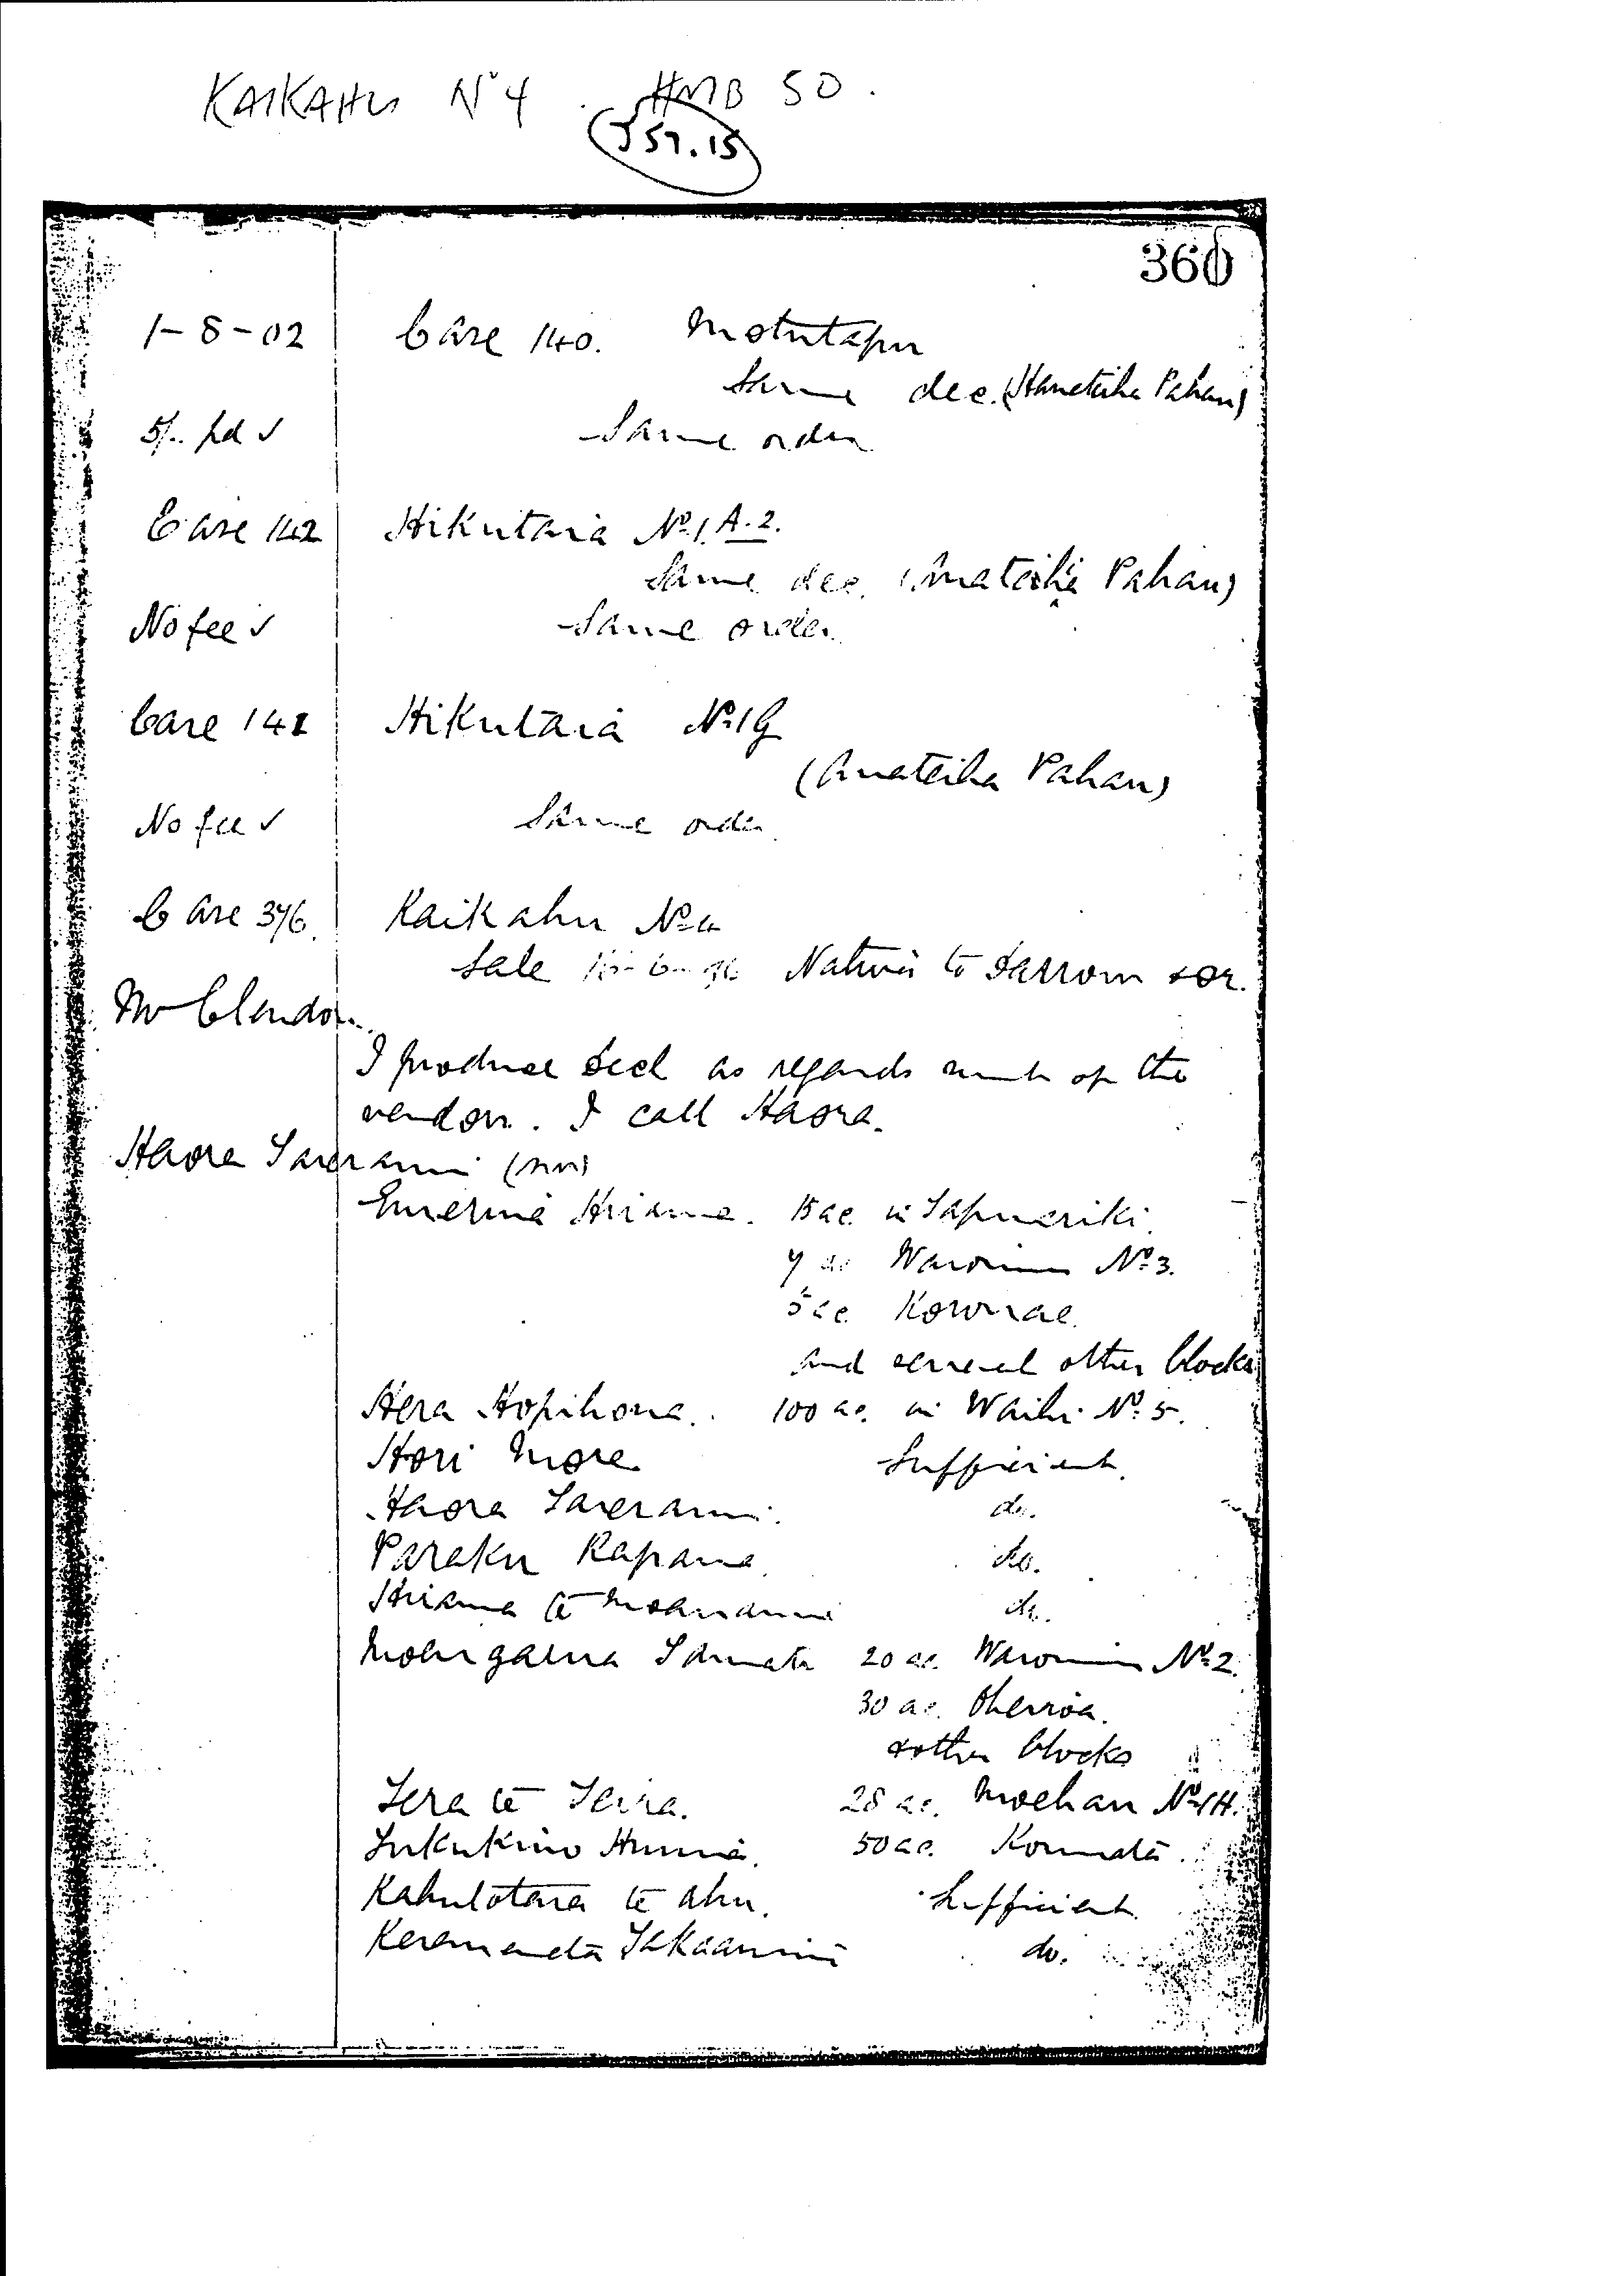 KAIKAHU No 4 . HMB 50.
J 57.15
360
1-8-02 Case 140. Motutapu
Same dec. (Hanateiha Pahau)
5/- pd ✓ Same order
Case 142 Hikutaia No.1.A.2.
Same dec. (Anateiha Pahau)
No fee ✓ Same order.
Case 141 Hikutaia No 1G
(Anateiha Pahau)
No fee ✓ Same order.
Case 376. Kaikahu No 4
Sale Natives to &or.
Mr Clendon
I produce deed as regards of the
vendors. I call Haora.
Haora Tareranui (sworn)
Hiriama. 15 ac. in Tapuariki
7 ac No 3.
5 ac.
and several other blocks
Hera Hopihona. 100 ac. in Waihi No. 5.
Hori More Sufficient.
Haora Tareranui. do.
Paraku Rapana do.
Hiriama te do.
20 ac. No 2.
30 ac.
& other blocks
Tera te Teira. 28 ac. Moehau No 1H.
Tukukino 50 ac. Komata.
Kahutotara te Ahu. Sufficient.
Keremeneta Takaanini do.